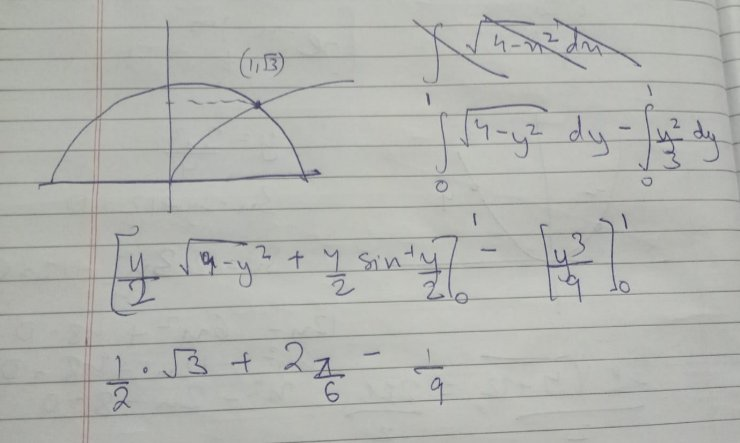 (1,√3)
∫ √4-x² dx
∫₀¹ √4-y² dy - ∫₀¹ y²/3 dy
[y/2 √4-y² + 4/2 sin⁻¹ y/2]₀¹ - [y³/9]₀¹
1/2 · √3 + 2 π/6 - 1/9